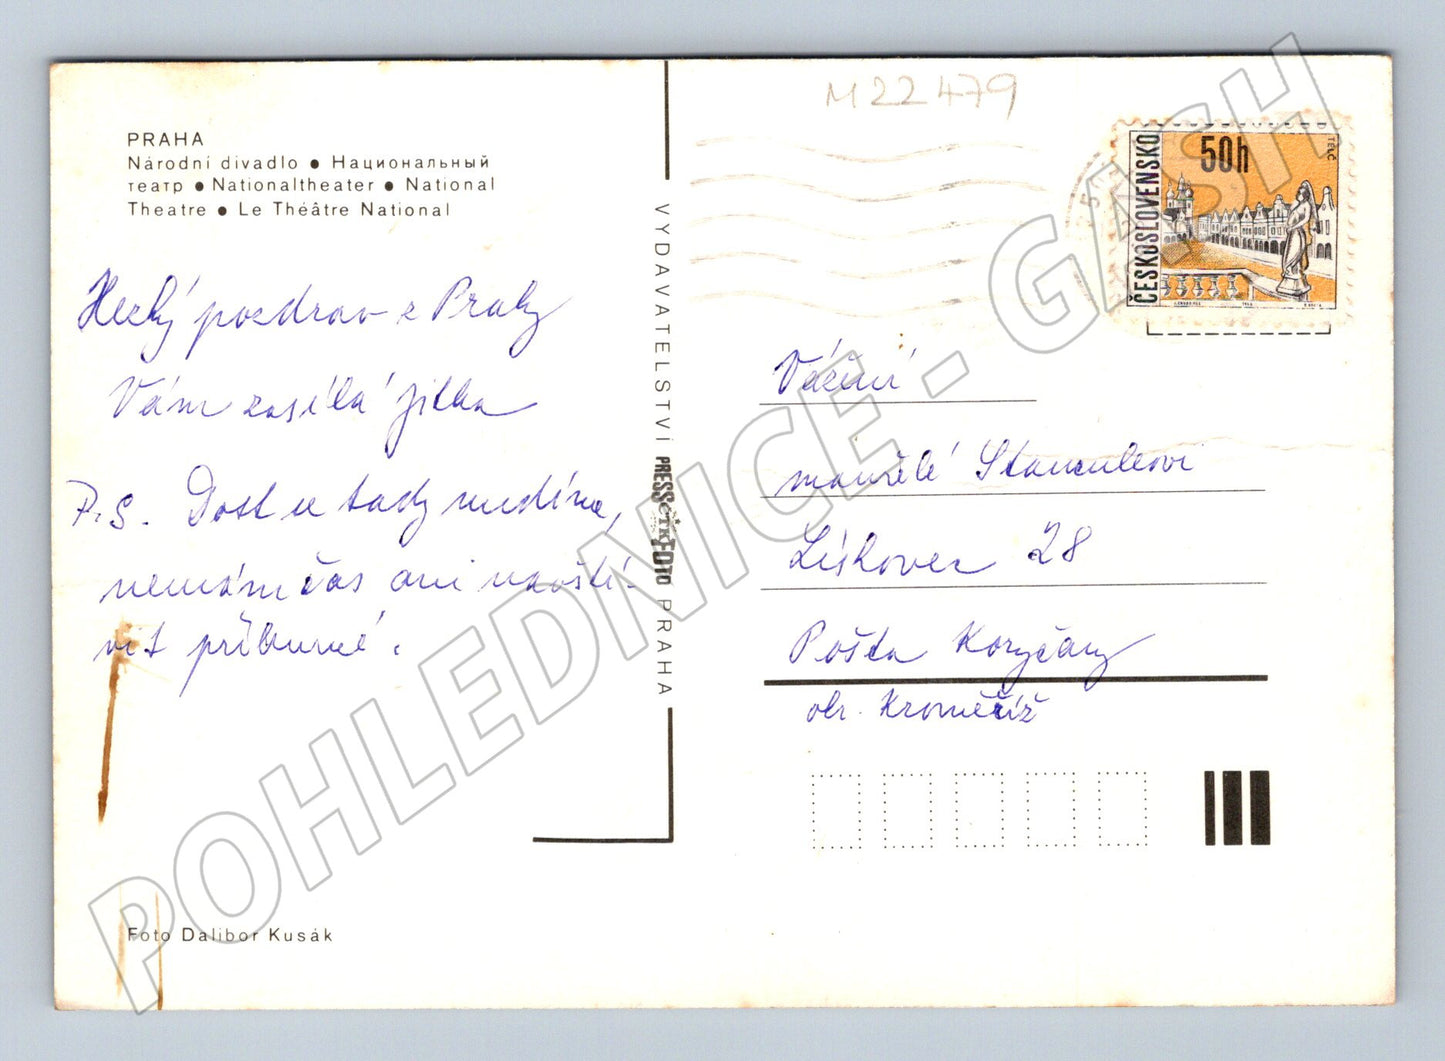 M22479
PRAHA
Národní divadlo ● Национальный
театр ● Nationaltheater ● National
Theatre ● Le Théâtre National
Hezký pozdrav z Prahy
Vám zasílá Jitka
P.S. Dost se tady nudíme,
nemám čas ani navští-
vit příbuzné.
Foto Dalibor Kusák
VYDAVATELSTVÍ PRESSFOTO PRAHA
ČTK
ČESKOSLOVENSKO
50h
TELČ
Vážení
manželé
Lískovec 28
Pošta Koryčany
okr. Kroměříž
POHLEDNICE - GASH